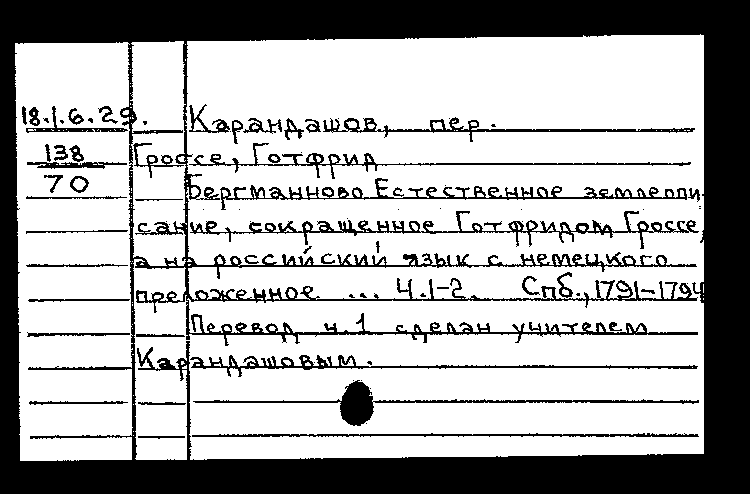 18.1.6.29. Карандашов, пер.
138 Гроссе, Готфрид
70 Бергманново Естественное землеопи-
сание, сокращенное Готфридом Гроссе,
а на российский язык с немецкого
преложенное ... Ч.1-2. Спб., 1791-1794
Перевод ч.1 сделан учителем
Карандашовым.